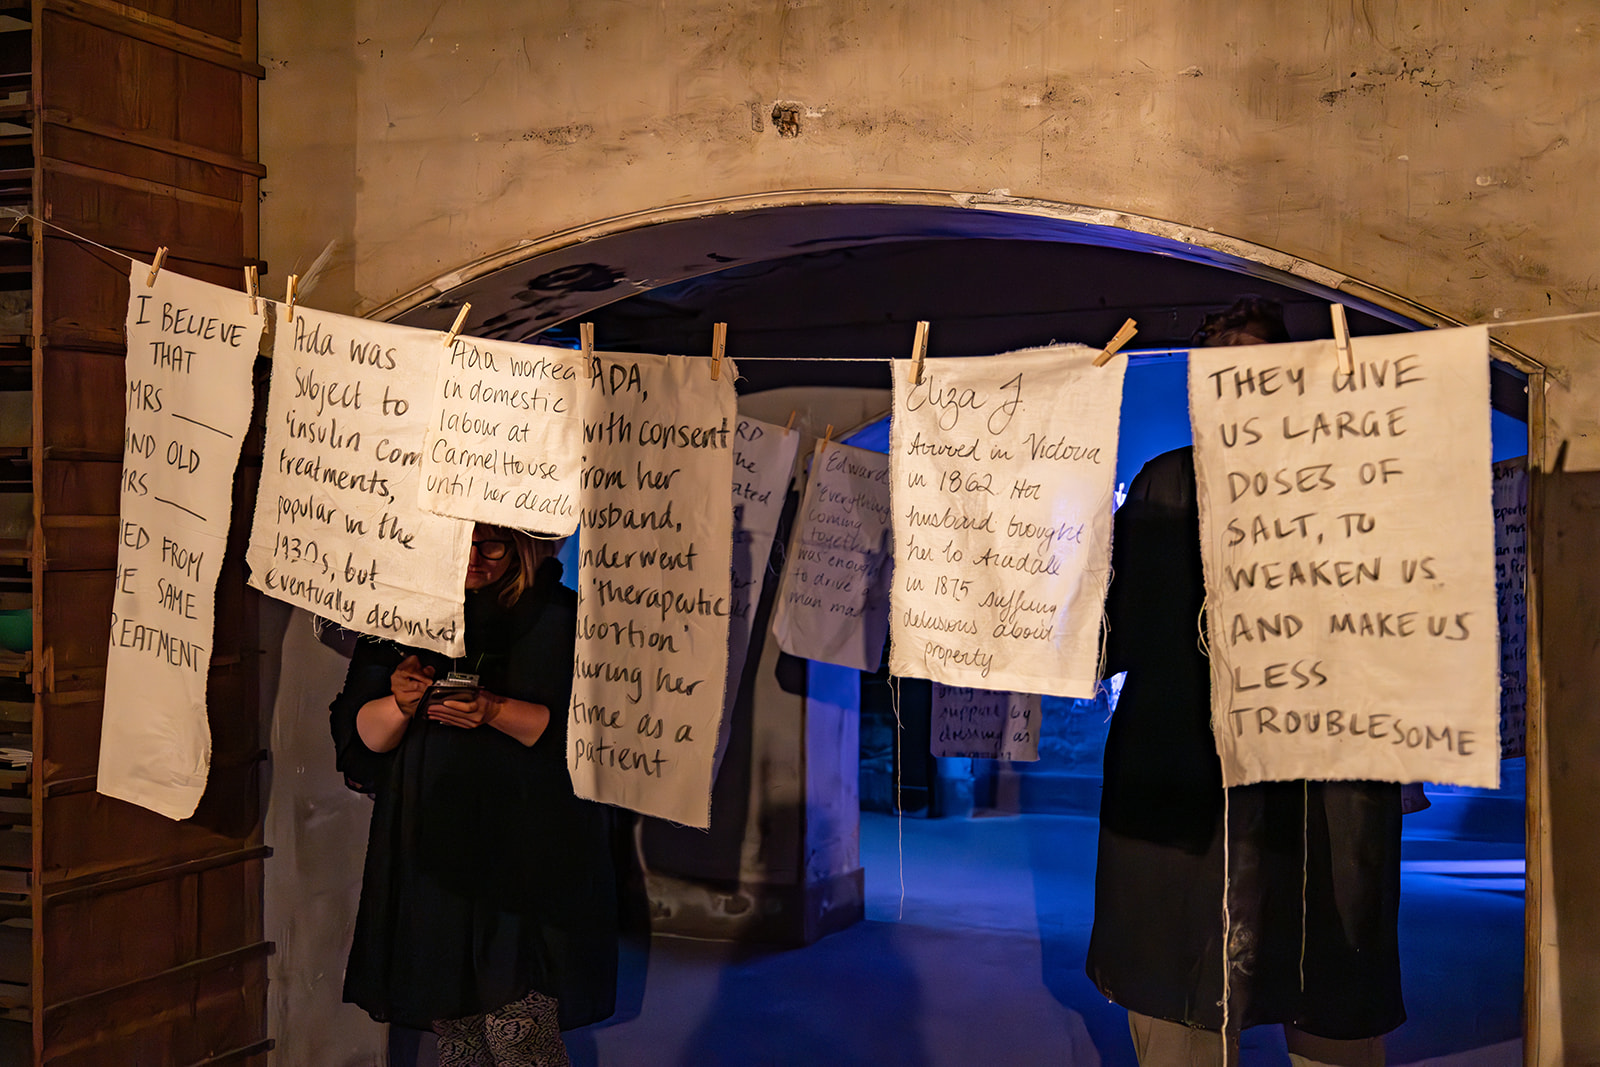 I BELIEVE
THAT
MRS ___
AND OLD
MRS ___
FROM
SAME
Ada was
subject to
'insulin com
treatments,
popular in the
1930s, but
eventually debunked
Ada worked
in domestic
labour at
Carmel House
until her death
ADA,
with consent
from her
husband,
underwent
'therapeutic
abortion'
during her
time as a
patient
Edward
"Everything
coming
together
was enough
to drive a
man mad
Eliza J.
Arrived in Victoria
in 1862. Her
husband brought
her to Aradale
in 1875 suffering
delusions about
property
support by
dressing as
THEY GIVE
US LARGE
DOSES OF
SALT, TO
WEAKEN US
AND MAKE US
LESS
TROUBLESOME